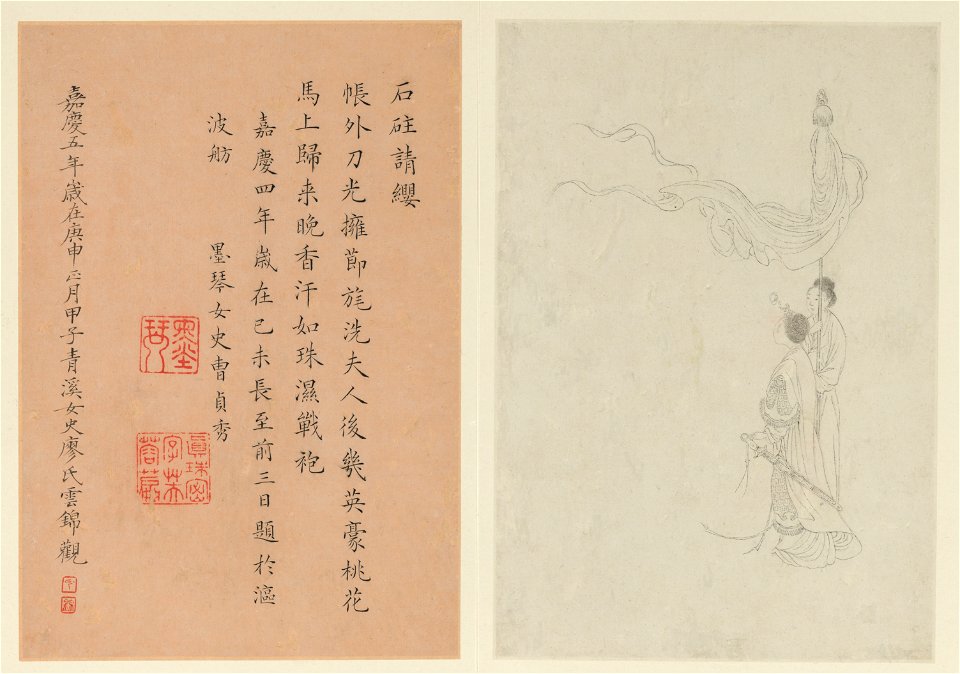 石砫請纓
帳外刀光擁節旄洗夫人後幾英豪桃花
馬上歸来晚香汗如珠濕戰袍
嘉慶四年歲在己未長至前三日題於漚
波舫
墨琴女史曹貞秀
墨琴
嘉慶五年歲在庚申正月甲子青溪女史廖氏雲錦觀